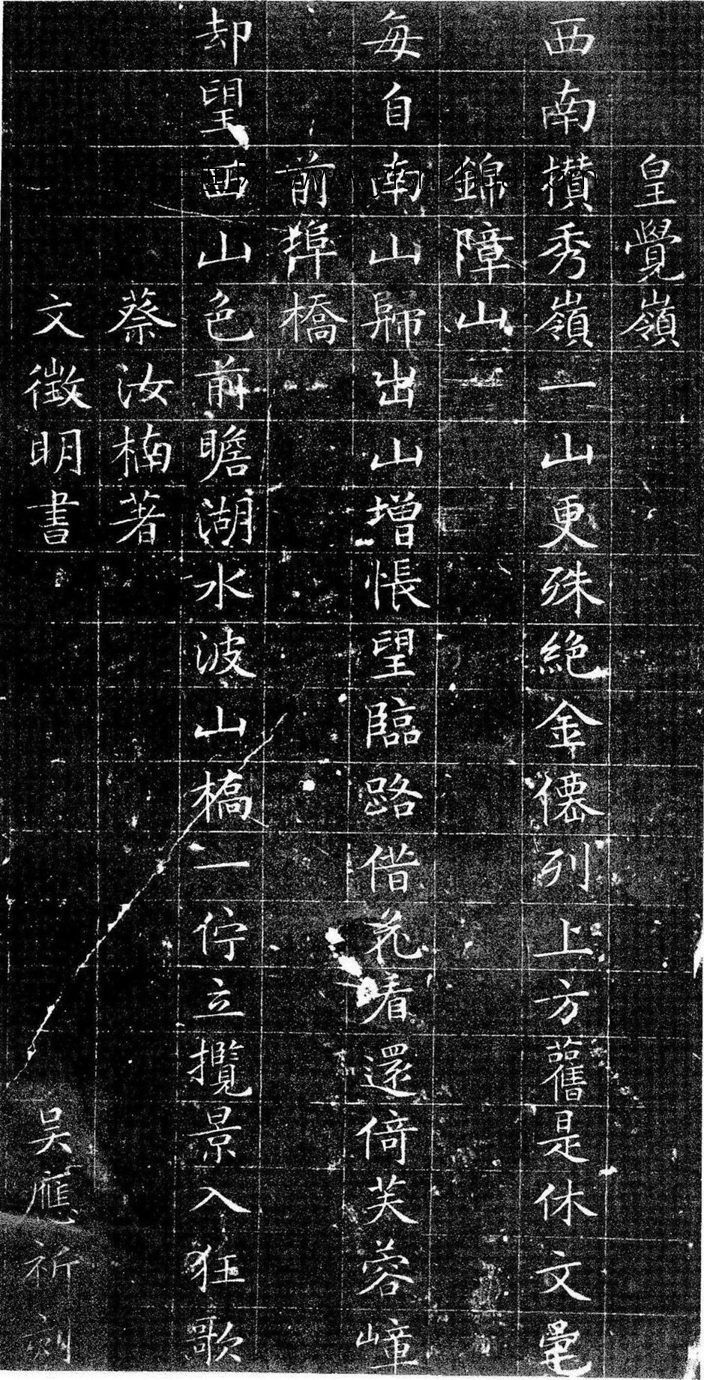 皇覺嶺
西南欑秀嶺一山更殊絶金僊列上方舊是休文宅
錦障山
每自南山歸出山增悵望臨路借花看還倚芙蓉嶂
前埠橋
却望西山色前瞻湖水波山橋一佇立攬景入狂歌
蔡汝楠著
文徵明書
吴應祈刻